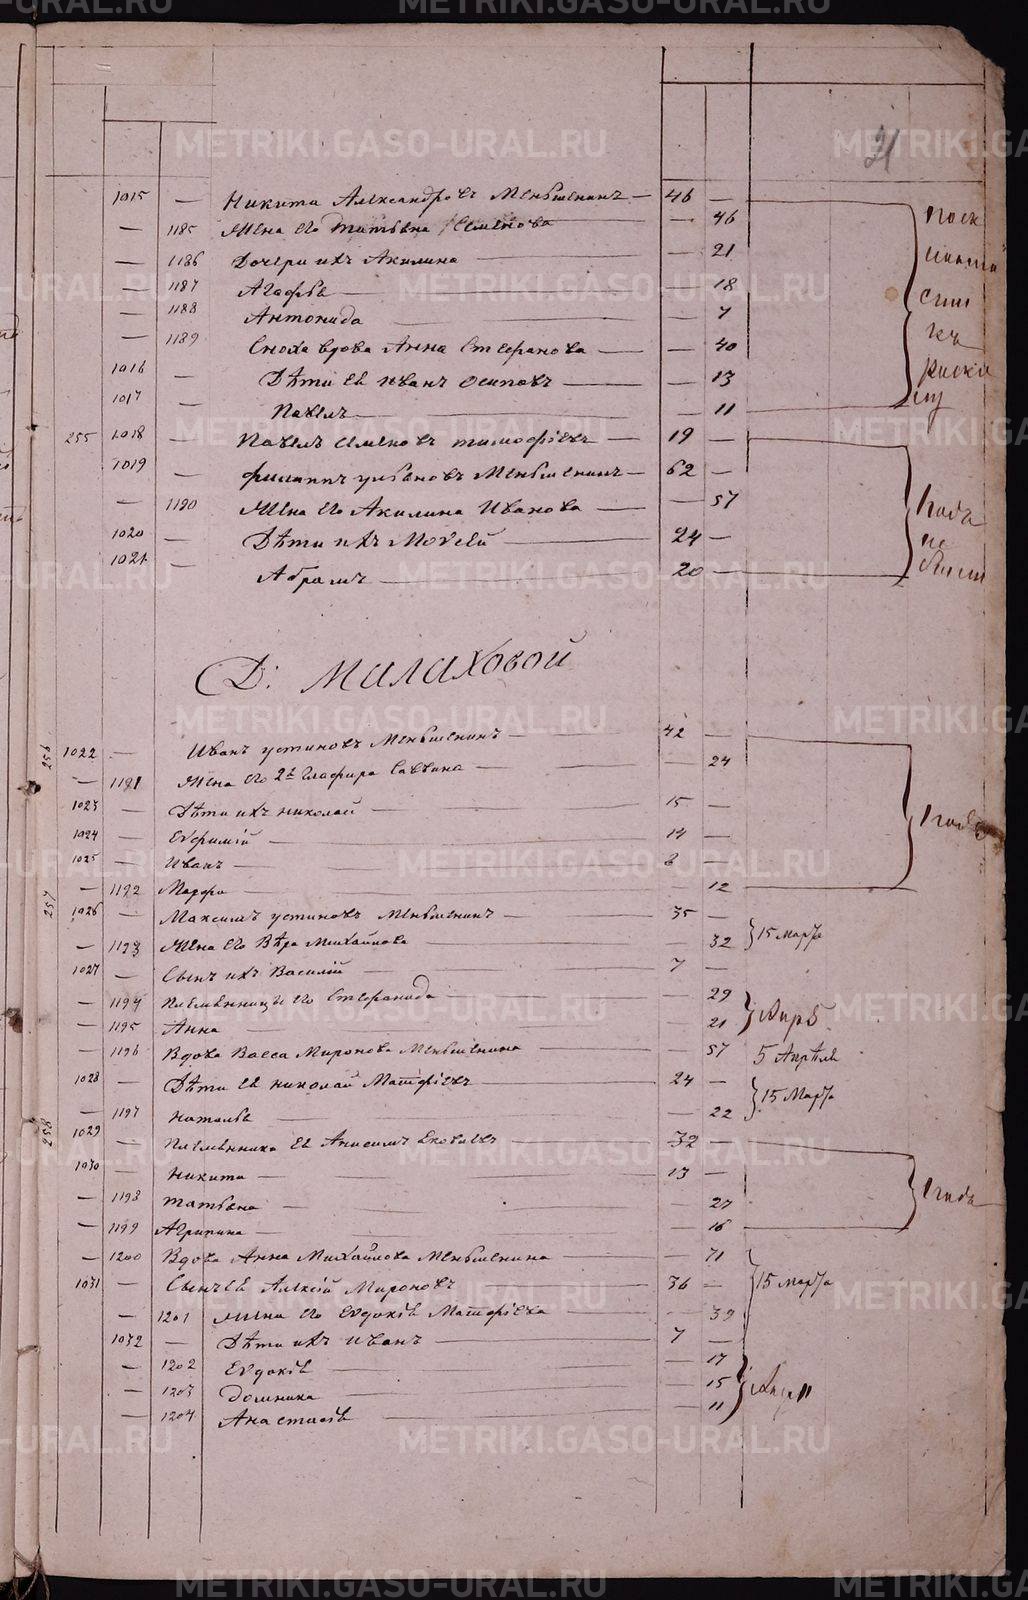 1015 — Никита Александровъ Меньшенинъ — 46 —
— 1185 Жена его Татьяна Семенова — 46
— 1186 Дочери ихъ Акилина — — 21
— 1187 Агафья — — 18
— 1188 Антонида — — 7
— 1189 Сноха вдова Анна Стефанова — — 40
1016 — Дѣти ея Иванъ Осиповъ — — 13
1017 — Павелъ — — 11
255 1018 — Павелъ Семеновъ Тимофѣевъ — 19 —
1019 — Филиппъ Урбановъ Меньшенинъ — 62 —
— 1190 Жена его Акилина Иванова — — 57
1020 — Дѣти ихъ Мосей — 24 —
1021 — Абрамъ — 20 —
Д: Малаховой
256 1022 — Иванъ Устиновъ Меньшенинъ — 42 —
— 1191 Жена его 2я Глафира Саввина — — 24
1023 — Дѣти ихъ Николай — 15 —
1024 — Евфимій — 14 —
1025 — Иванъ — 8 —
— 1192 Марфа — — 12
257 1026 — Максимъ Устиновъ Меньшенинъ — 35 —
— 1193 Жена его Вѣра Михайлова — — 32 15 Марта
1027 — Сынъ ихъ Василій — 7 —
— 1194 Племянницы его Стефанида — — 29
— 1195 Анна — — 21
— 1196 Вдова Васса Миронова Меньшенина — — 57 5 Апрѣля
1028 — Дѣти ея Николай Матфѣевъ — 24 — 15 Марта
— 1197 Наталья — — 22
258 1029 — Племянника ея Анисимъ Яковлевъ — 32 —
1030 — Никита — 13 —
— 1198 Татьяна — — 27
— 1199 Агрипина — — 16
— 1200 Вдова Анна Михайлова Меньшенина — — 71
1031 — Сынъ ея Алексѣй Мироновъ — 36 — 15 Марта
— 1201 Жена его Евдокія Матфѣева — — 39
1032 — Дѣти ихъ Иванъ — 7 —
— 1202 Евдокія — — 17
— 1203 Домника — — 15
— 1204 Анастасія — — 11
METRIKI.GASO-URAL.RU